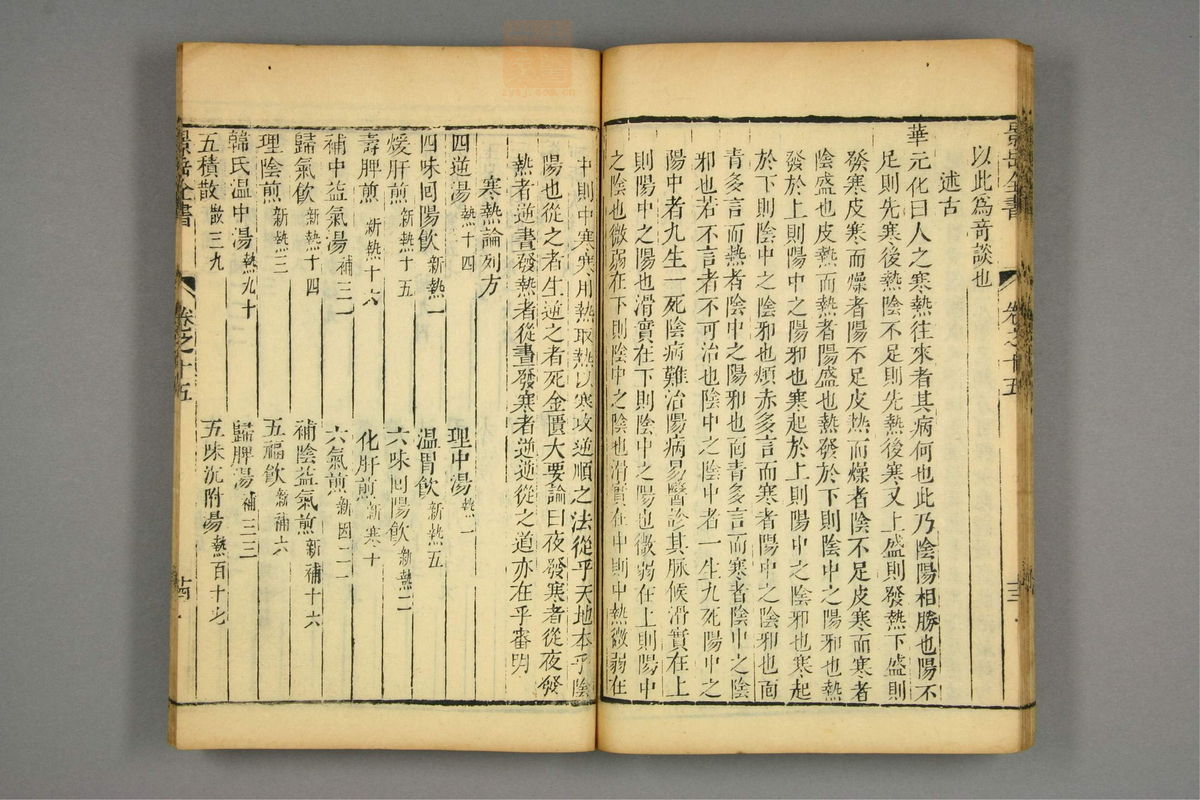 景岳全書 卷之十五 三
以此爲竒談也
述古
華元化曰人之寒熱往來者其病何也此乃陰陽相勝也陽不
足則先寒後熱陰不足則先熱後寒又上盛則發熱下盛則
發寒皮寒而燥者陽不足皮热而燥者陰不足皮寒而寒者
陰盛也皮熱而熱者陽盛也熱發於下則陰中之陽邪也熱
發於上則陽中之陽邪也寒起於上則陽中之陰邪也寒起
於下則陰中之陰邪也頰赤多言而寒者陽中之陰邪也面
青多言而熱者陰中之陽邪也面青多言而寒者陰中之陰
邪也若不言者不可治也陰中之陰中者一生九死陽中之
陽中者九生一死陰病難治陽病易醫診其脉候滑實在上
則陽中之陽也滑實在下則陰中之陽也微弱在上則陽中
之陰也微弱在下則陰中之陰也滑實在中則中熱微弱在
中則中寒寒用熱取熱以寒攻逆順之法從乎天地本乎陰
陽也從之者生逆之者死金匱大要論曰夜發寒者從夜發
熱者逆晝發熱者從晝發寒者逆逆從之道亦在乎審明
寒熱論列方
四逆湯 熱十四 理中湯 熱一
四味囘陽飲 新熱一 温胃飲 新熱五
煖肝煎 新熱十五 六味囘陽飲 新熱二
壽脾煎 新熱十六 化肝煎 新寒十
補中益氣湯 補三一 六氣煎 新因二一
歸氣飲 新熱十四 補陰益氣煎 新補十六
理陰煎 新熱三 五福飲 新補六
韓氏温中湯 熱九十 歸脾湯 補三三
五積散 散三九 五味沉附湯 熱百十七
景岳全書 卷之十五